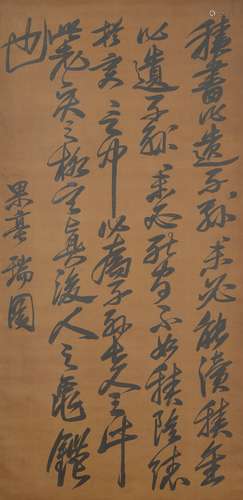 積書以遺子孫未必能讀積金
以遺子孫未必能守不如積陰德
於冥冥之中以為子孫長久之計
此先賢之格言真後人之龜鑑
也
果亭瑞圖